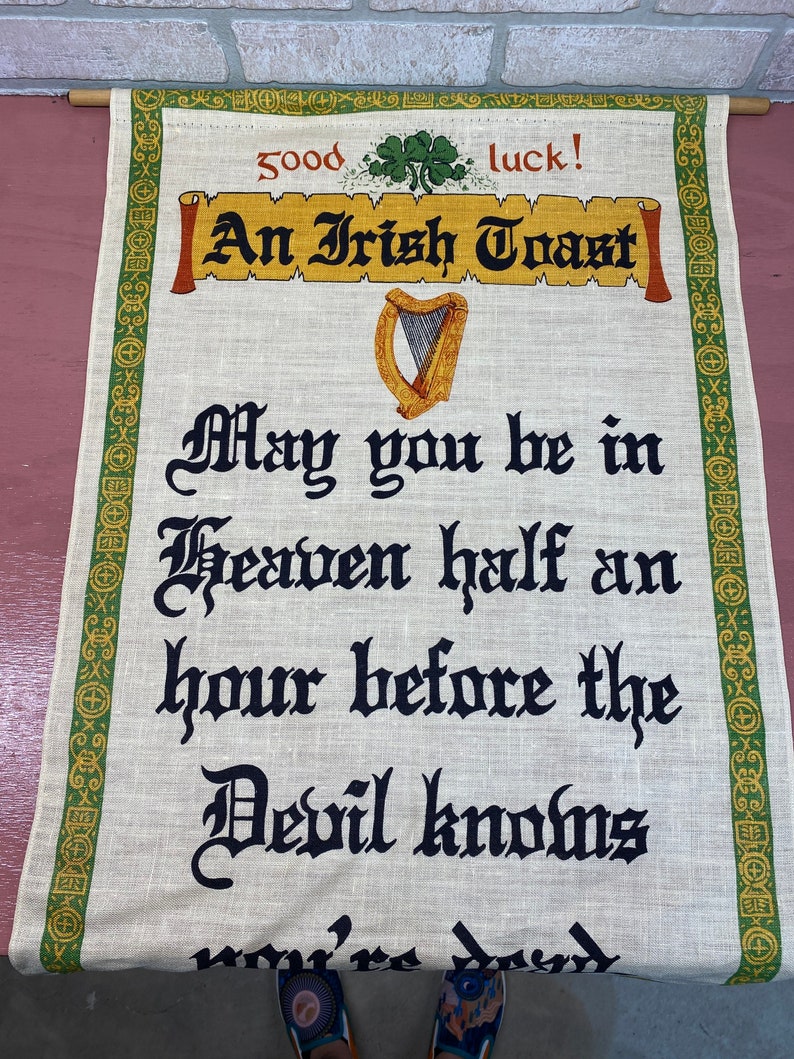 good luck!
An Irish Toast
May you be in
Heaven half an
hour before the
Devil knows
you're dead